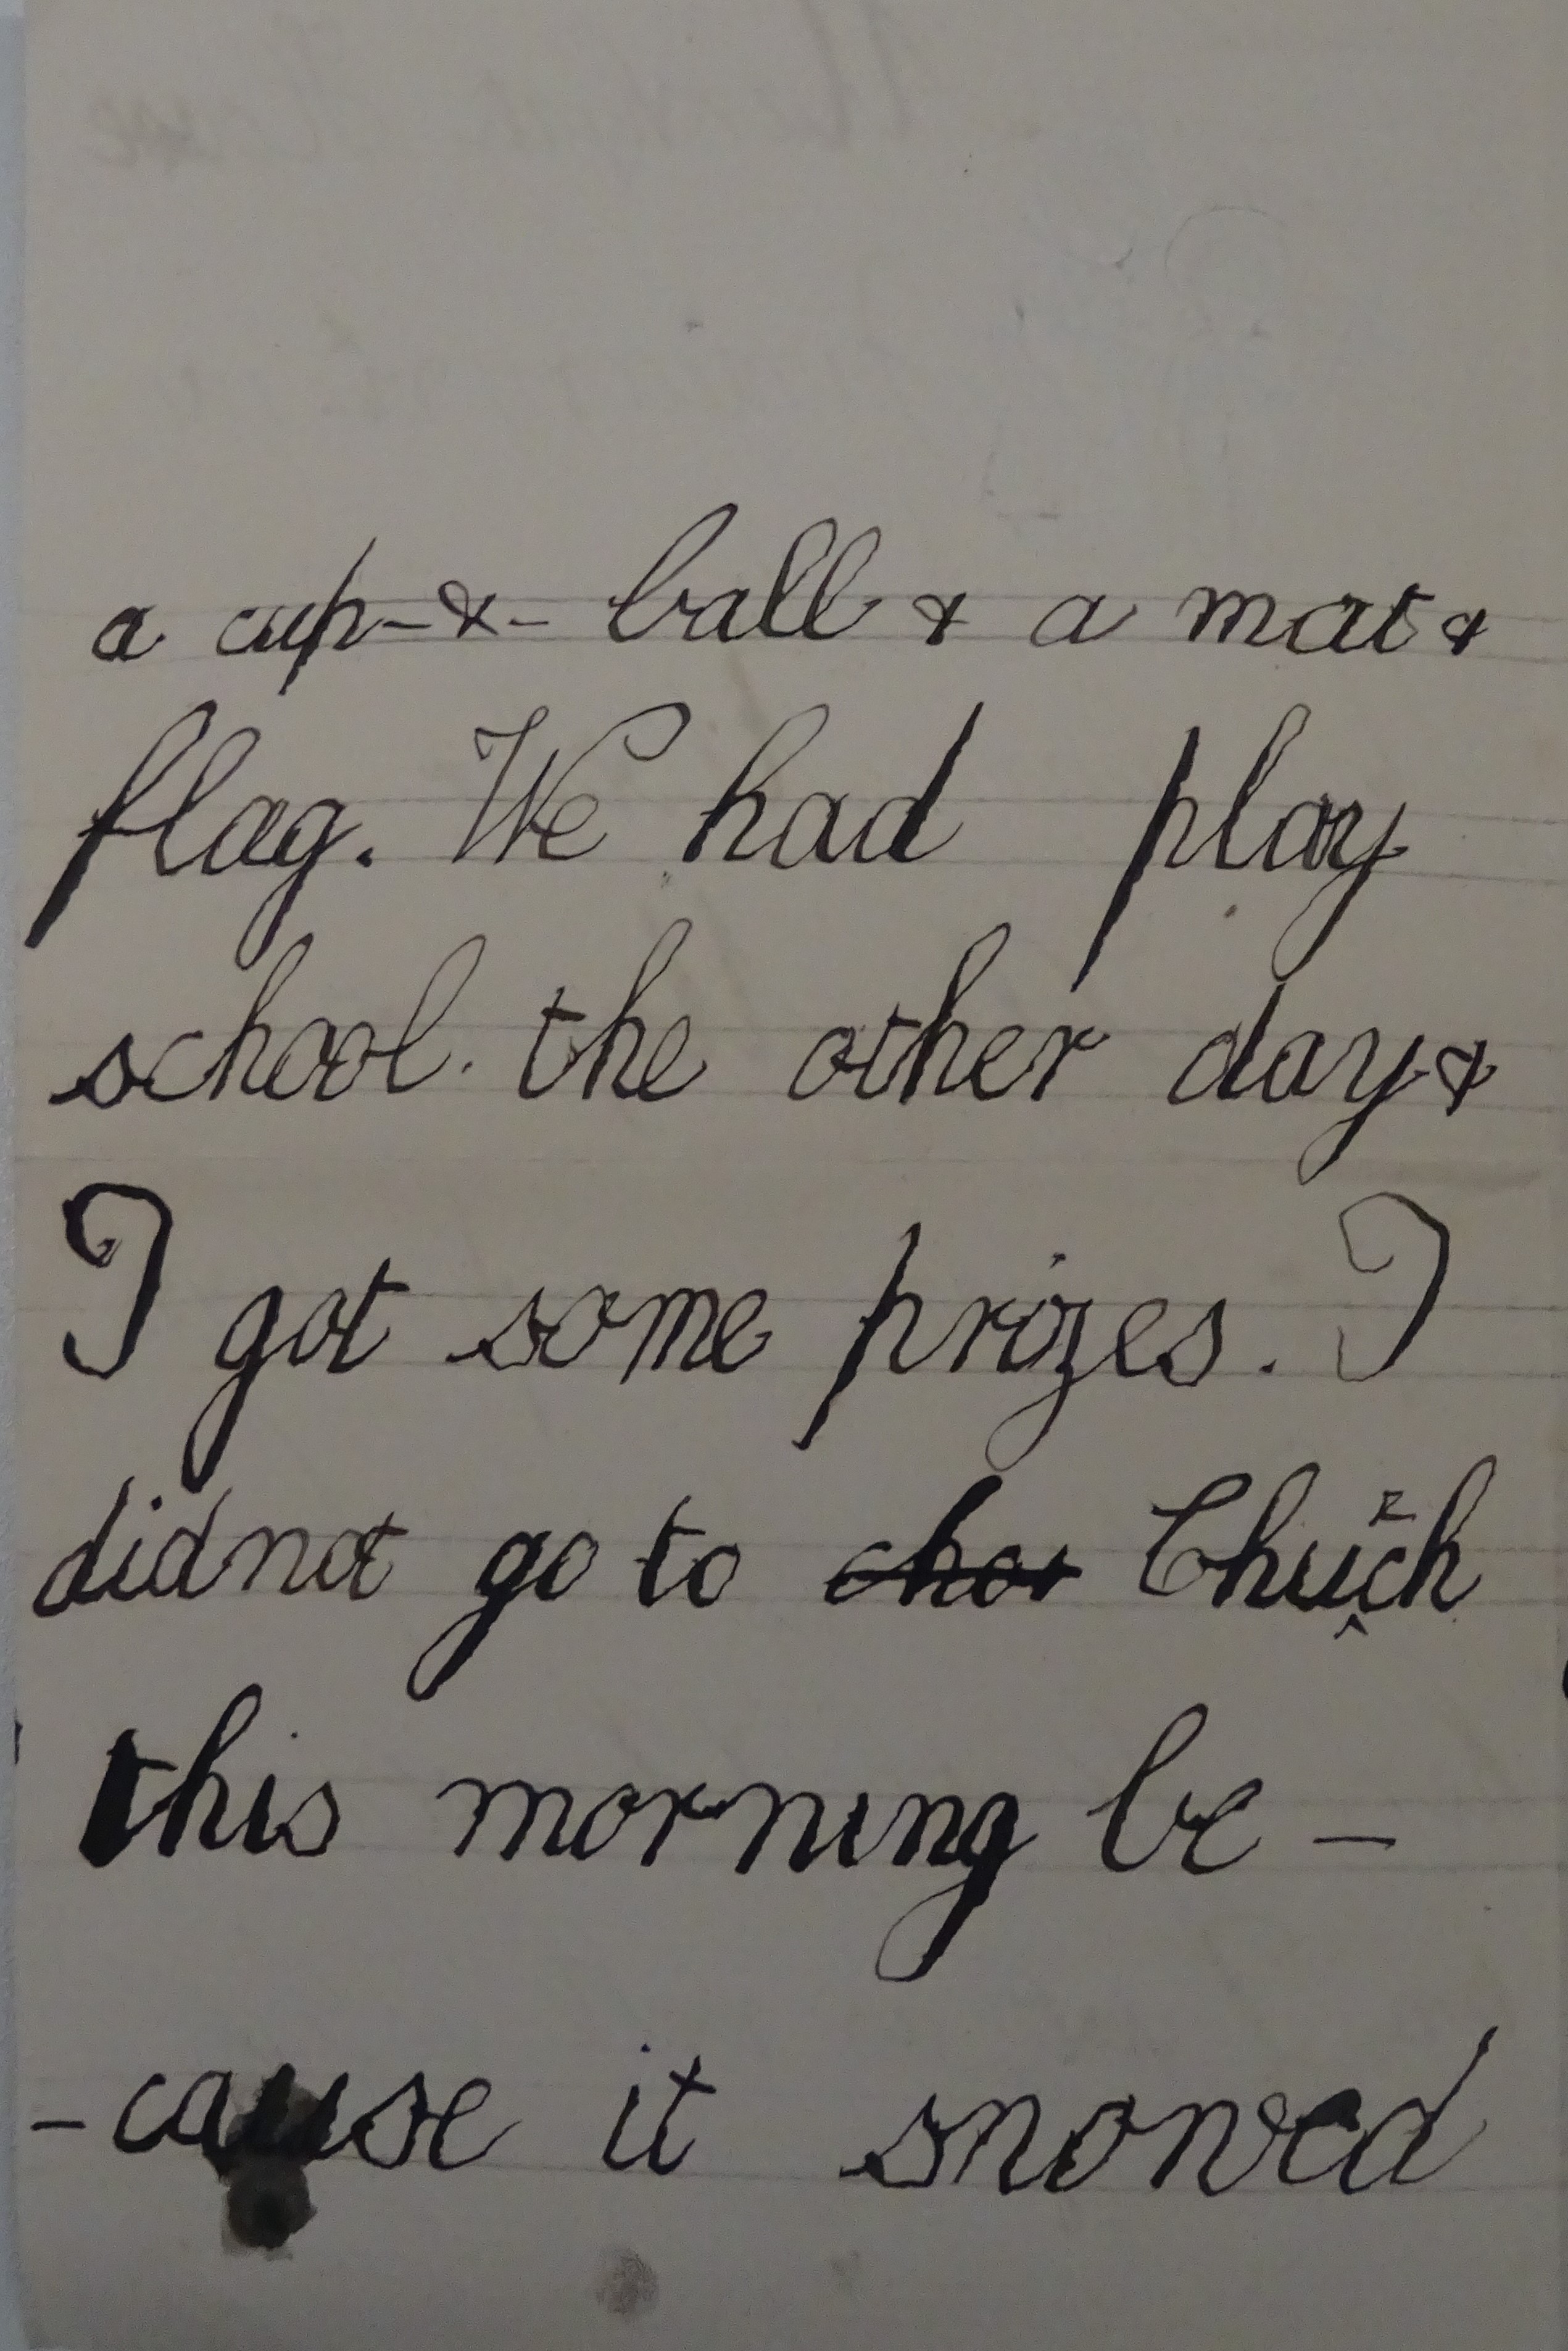 a cup-&- ball & a mat &
flag. We had play
school. the other day &
I got some prizes. I
did not go to chor Church
this morning be -
- cause it snowed